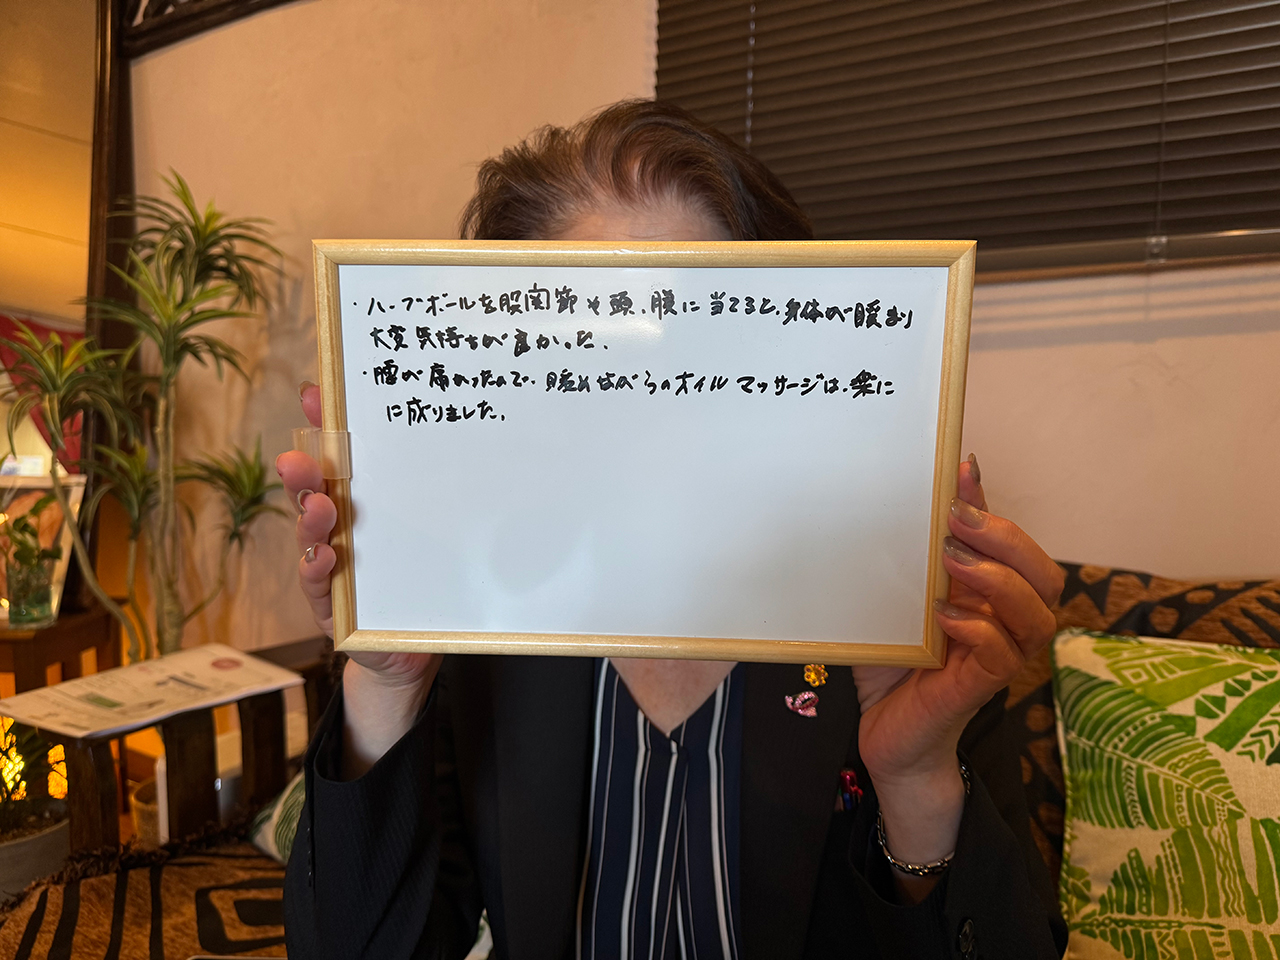 ・ハーブボールを股関節や頭、腰に当てると、身体が暖まり
大変気持ちが良かった。
・腰が痛かったので、暖めながらのオイルマッサージは、楽に
に成りました。